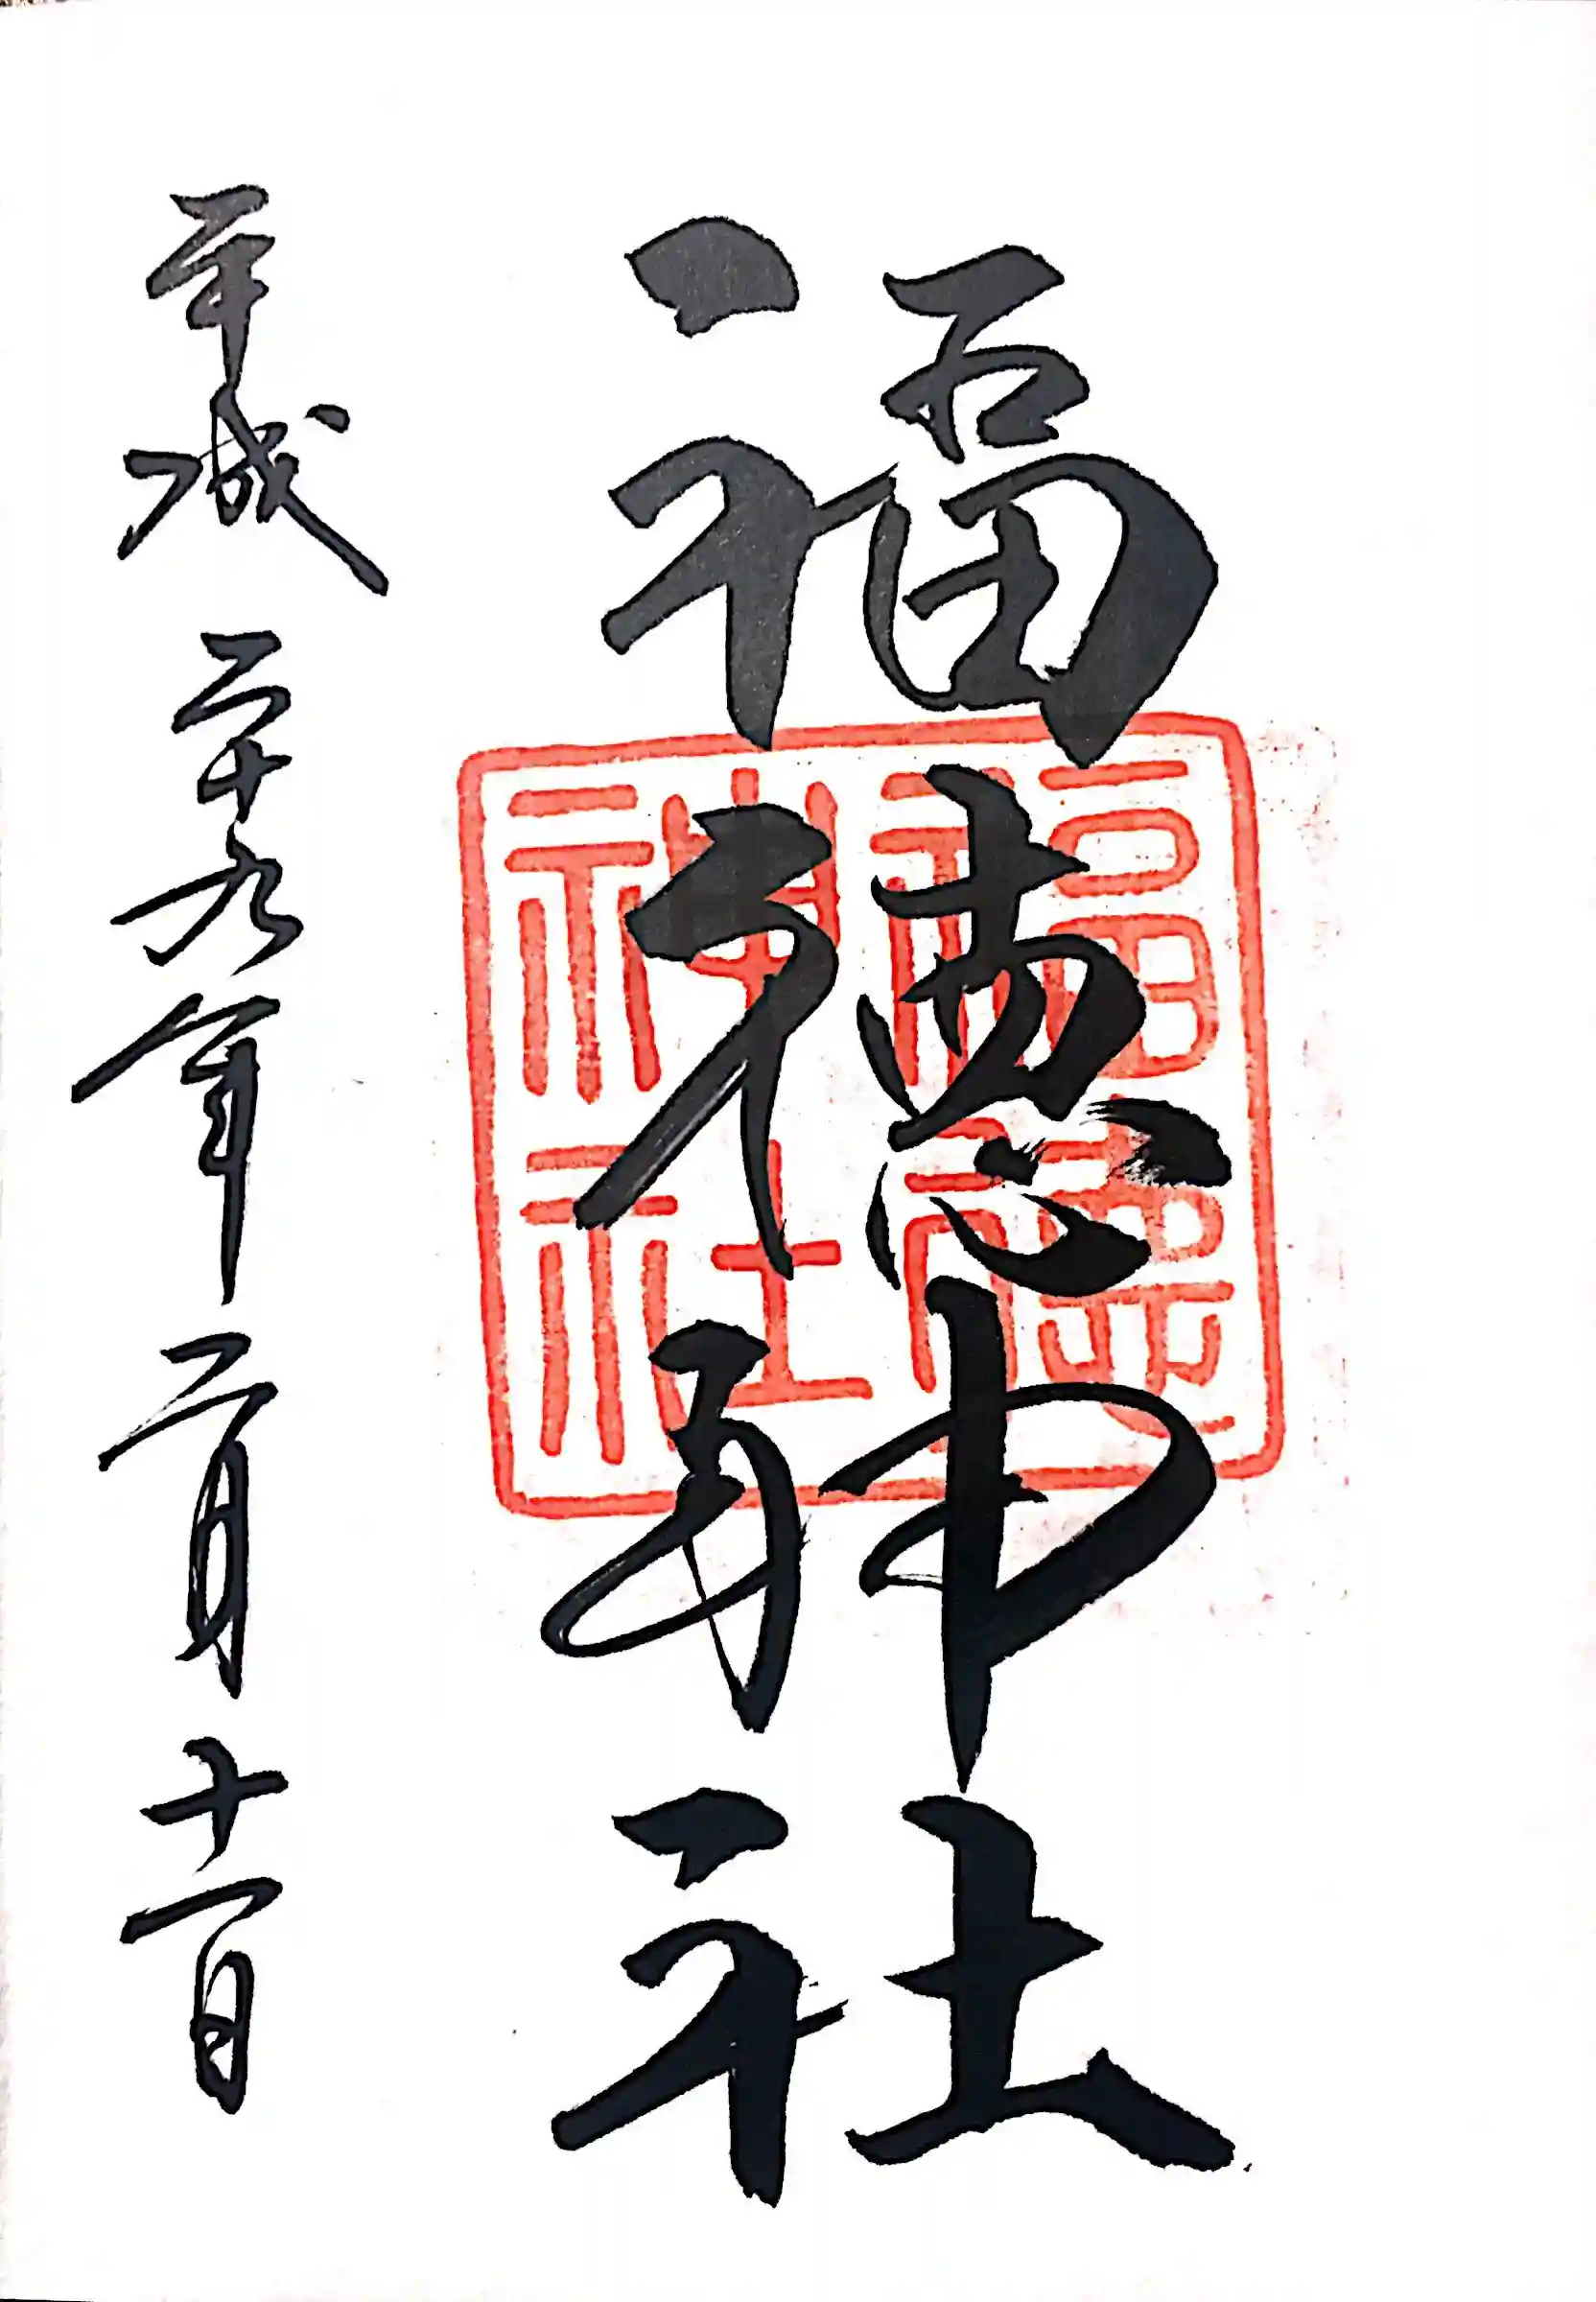 福徳神社
福徳
神社
平成二十九年二月十一日